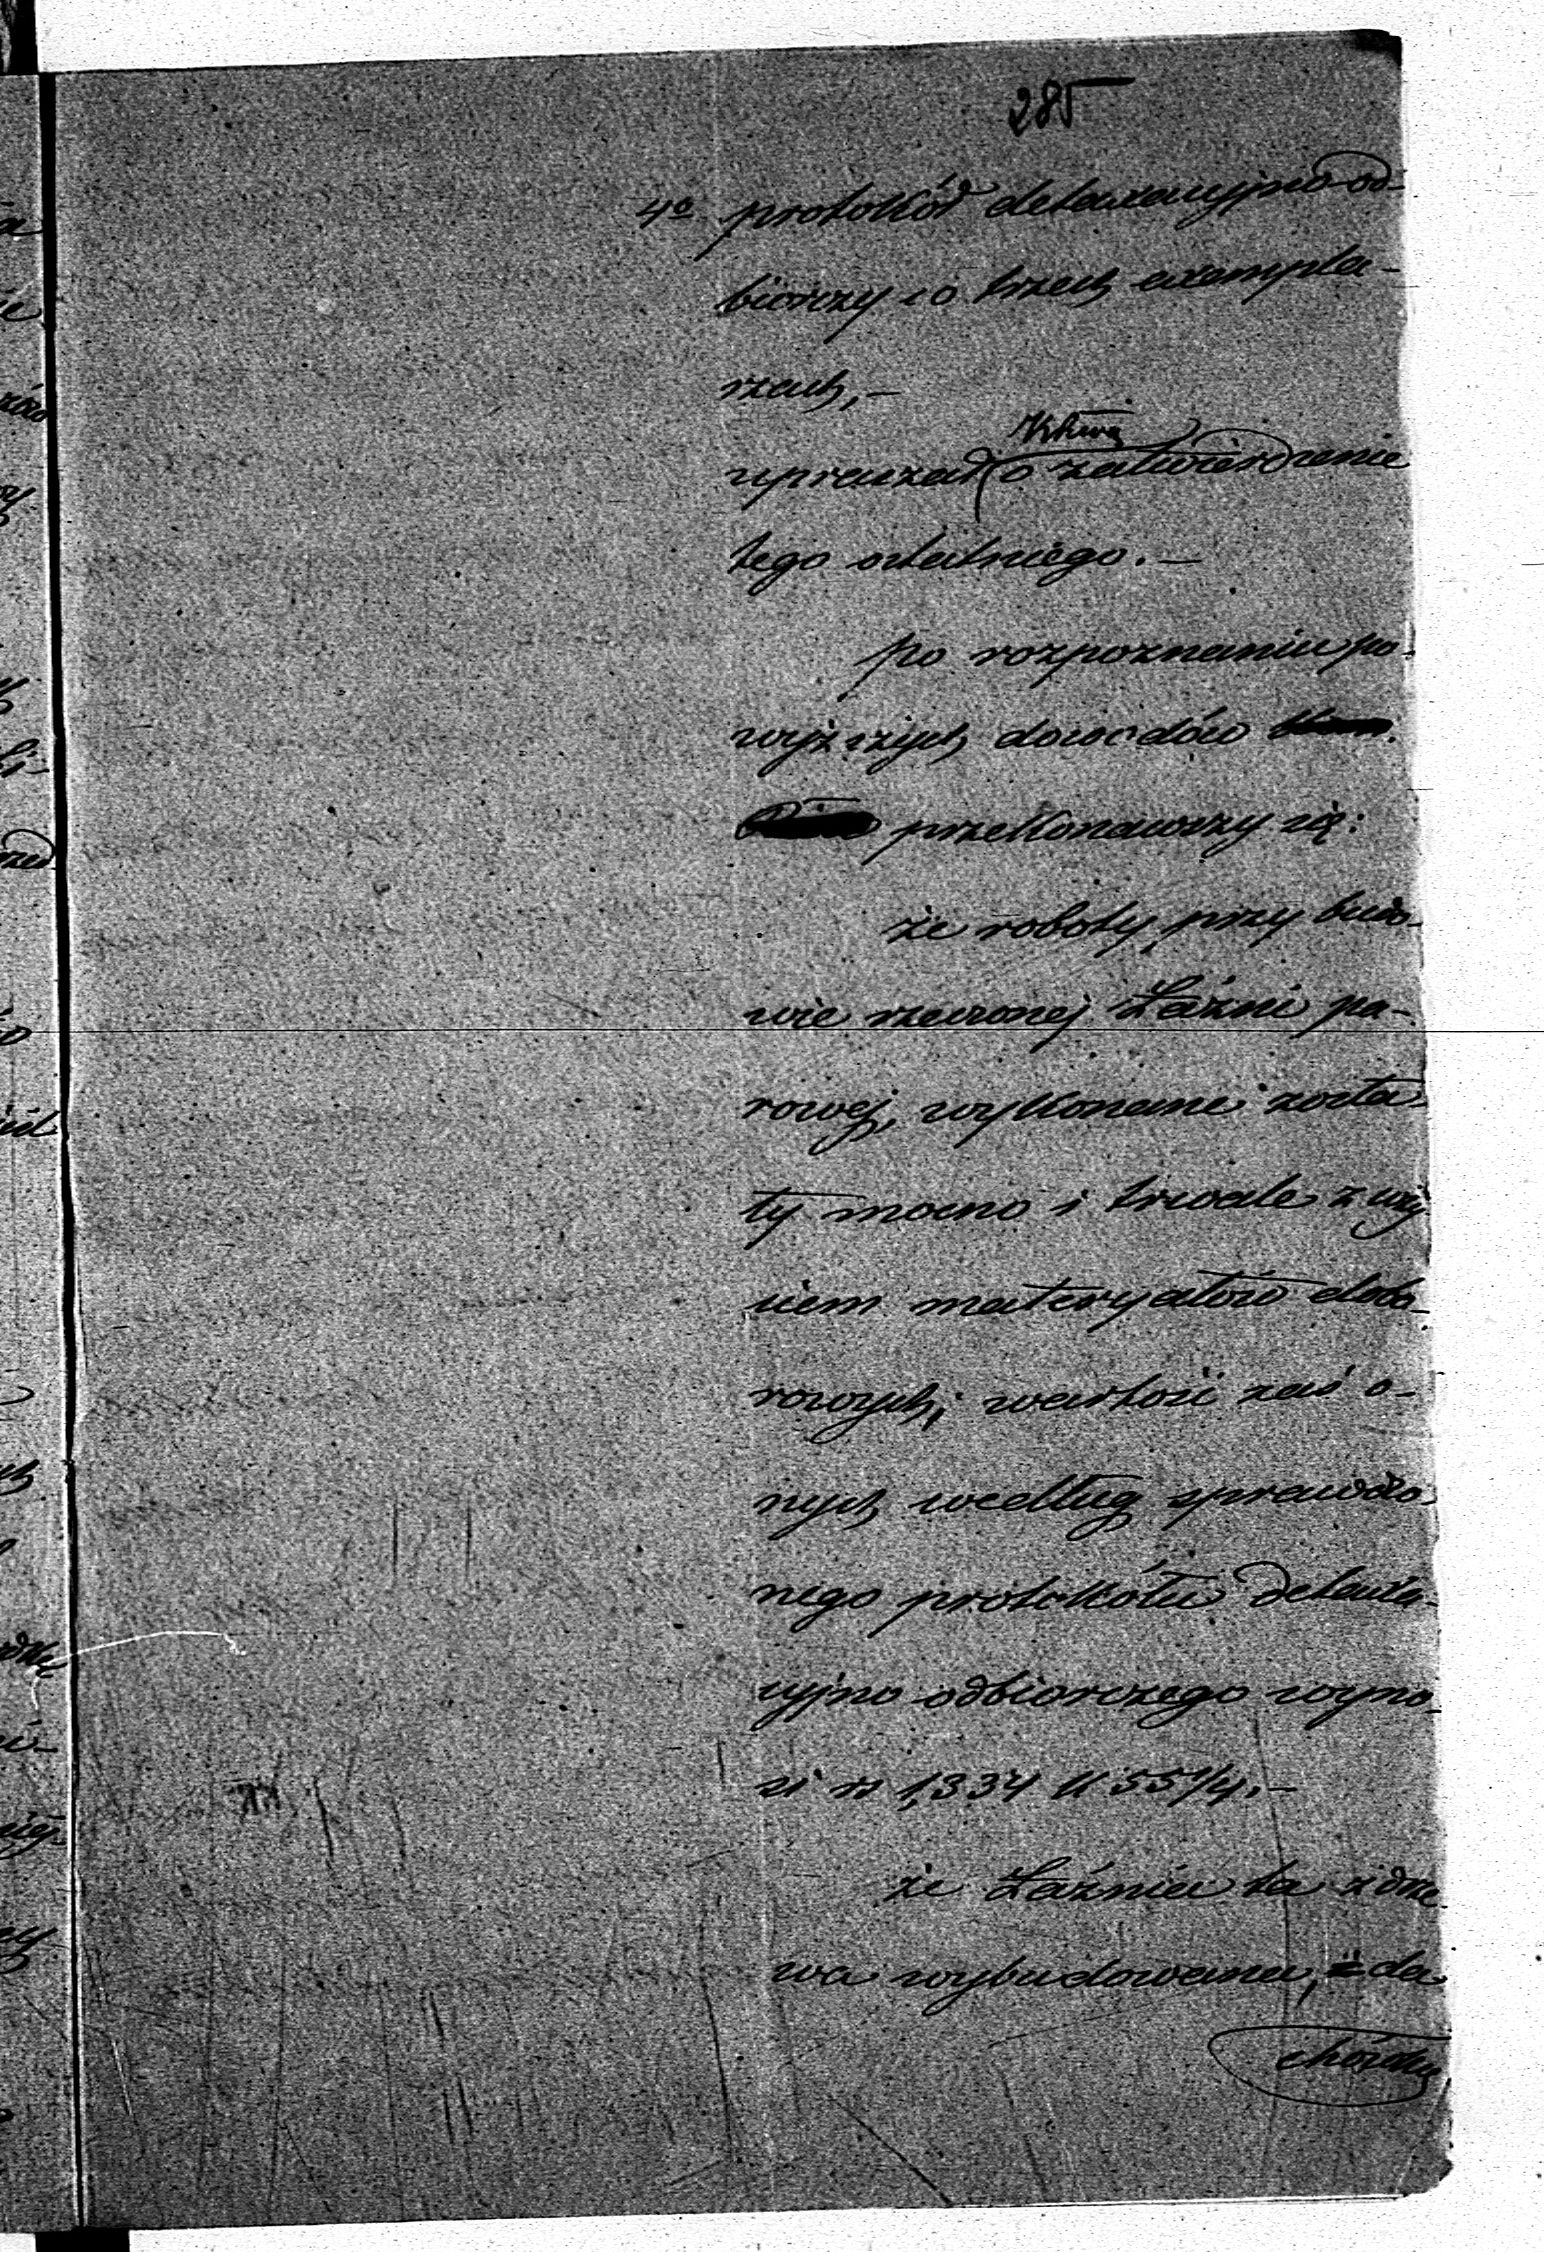 285
4o protokół detaxacyjno-od-
biorczy w trzech exempla-
rzach, —
upraszał o zatwierdzenie
tego ostatniego. —
po rozpoznaniu po-
wyższych dowodów
przekonawszy się:
że roboty przy budo-
wie rzeczonej Łaźni pa-
rowej, wykonane zosta-
ły mocno i trwale z uży
ciem materyałów dobo-
rowych; wartość zaś o-
nych według sprawdzo-
nego protokółu detaxa-
cyjno odbiorczego wyno-
si rs 1,334 k 55 1/4. —
że Łaźnia ta z drze-
wa wybudowana, z da
chówką